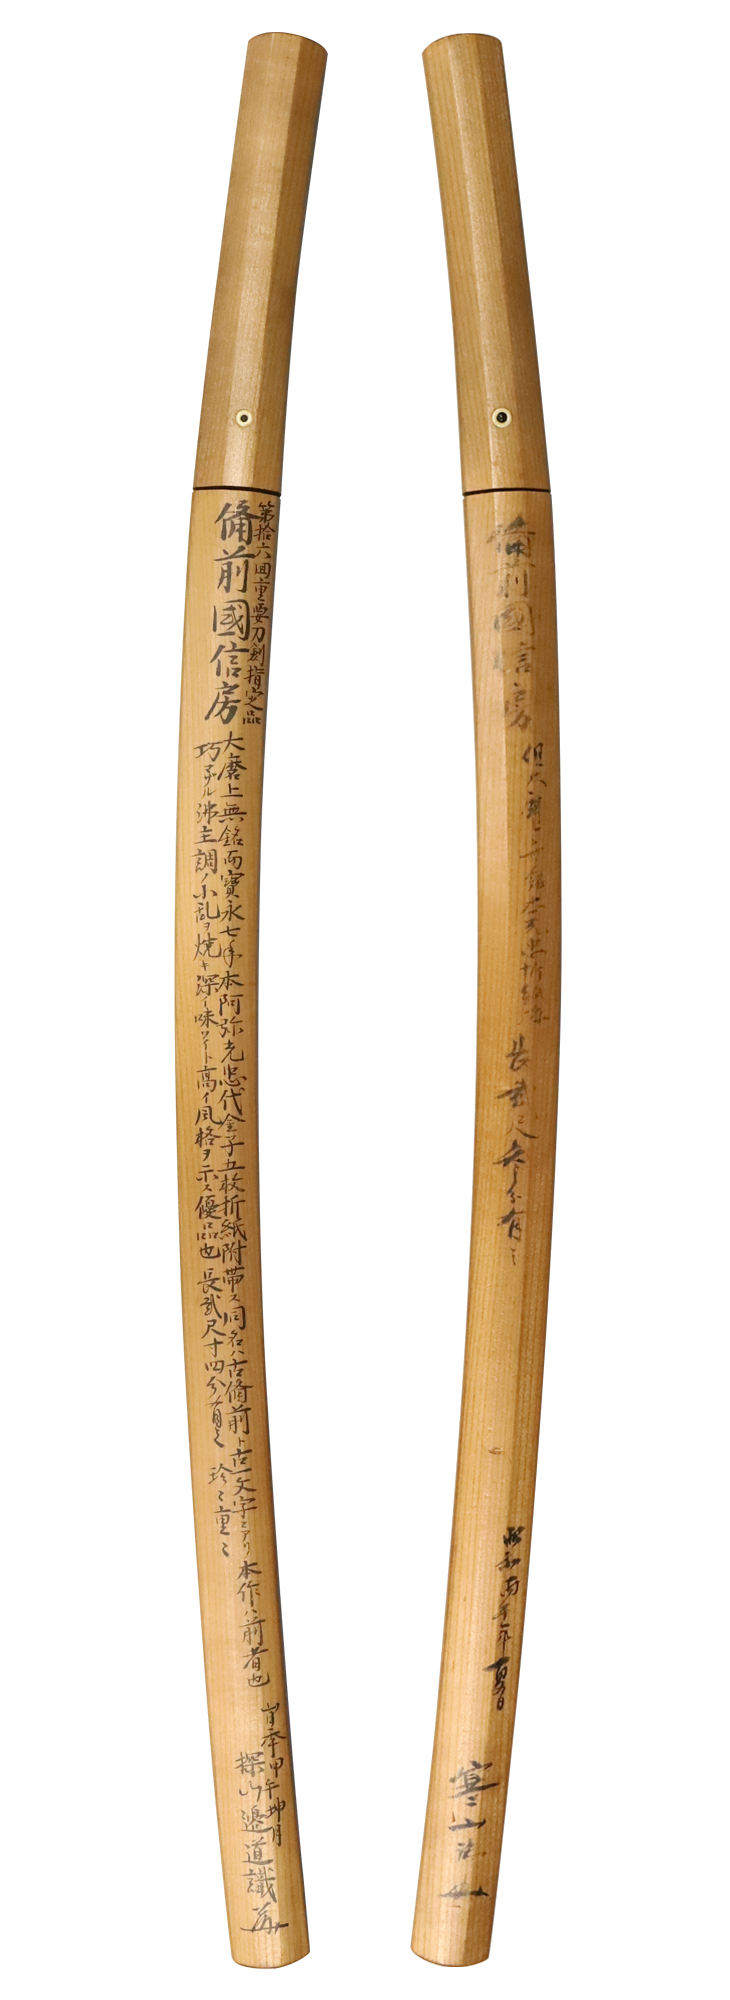 第拾六回重要刀剣指定品
備前國信房
大磨上無銘而寶永七年本阿弥光忠代金子五枚折紙附帯ス同名ハ古備前ト古一文字ニアリ本作ハ前者也
巧ミナル沸主調ノ小乱ヲ焼キ深イ味ワイト高イ風格ヲ示ス優品也 長貳尺寸四分有之 珍々重々
甲午坤月
探山邉道識
備前國信房
但大磨上無銘本光忠折紙
長貳尺 分有之
昭和 夏日
寒山誌